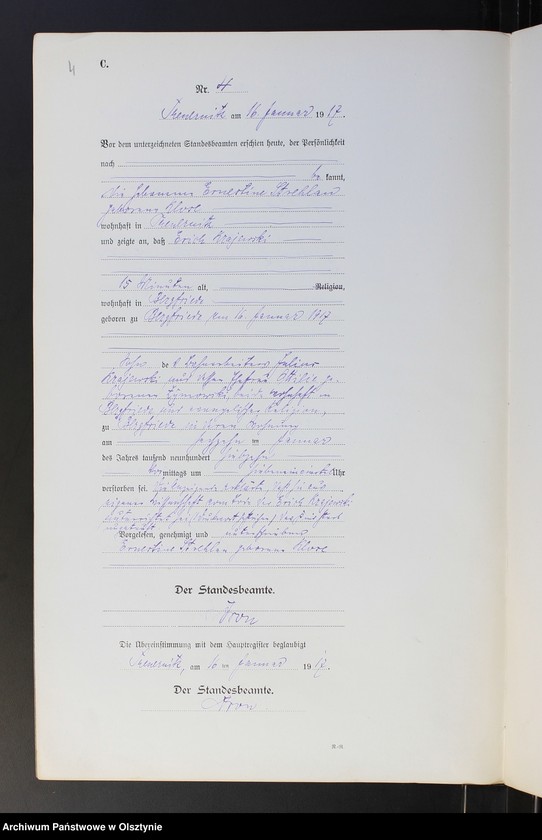 4
C.
Nr. 4
am 16 Januar 1917.
Vor dem unterzeichneten Standesbeamten erschien heute, der Persönlichkeit
nach
be kannt,
die Ernestine Strehlau
geborene
wohnhaft in
und zeigte an, daß Erich Krajewski
15 Minuten alt, Religion,
wohnhaft in Bergfriede
geboren zu Bergfriede am 16. Januar 1917
Sohn des Bahnarbeiters Julius
Krajewski und dessen Ehefrau Ottilie ge-
borenen beide wohnhaft in
Bergfriede und evangelischer Religion,
zu Bergfriede in ihrer Wohnung
am sechzehn ten Januar
des Jahres tausend neunhundert siebzehn
vor mittags um Uhr
verstorben sei. Die Anzeigende erklärte, daß sie aus
eigener Wissenschaft vom Tode des Erich Krajewski
unterrichtet sei.
Vorgelesen, genehmigt und unterschrieben
Ernestine Strehlau geborene
Der Standesbeamte.
Die Übereinstimmung mit dem Hauptregister beglaubigt
am 16 ten Januar 1917.
Der Standesbeamte.
Archiwum Państwowe w Olsztynie